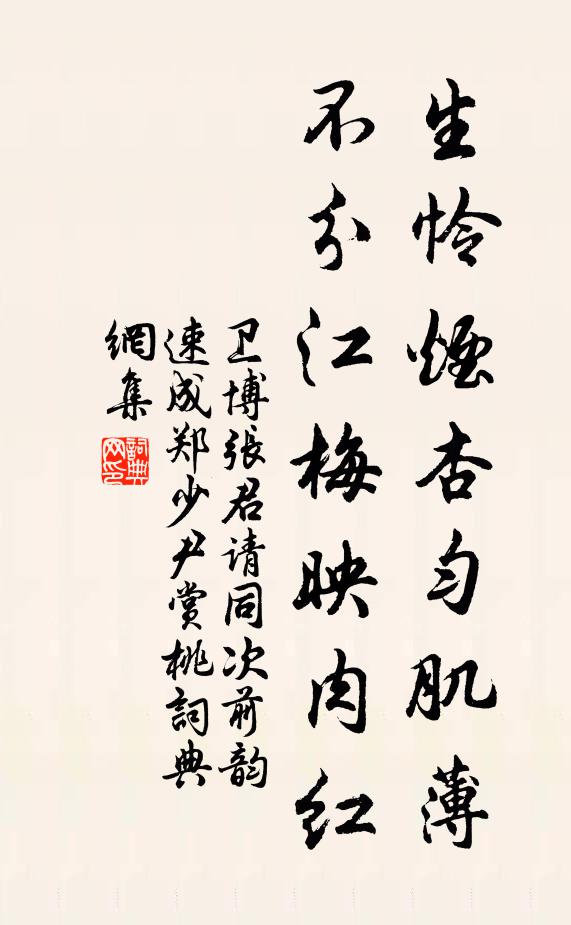 生怜煙杏匀肌薄
不分江梅映肉红
卫博張君请同次前韵
速成郑少尹赏桃詞典
網集
詞典网印